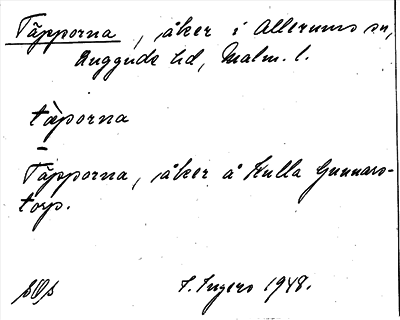 Täpporna, åker i Allerums sn,
Luggude hd, Malm. l.
tæporna
Täpporna, åker å Kulla Gunnars-
torp.
I. Ingers 1948.